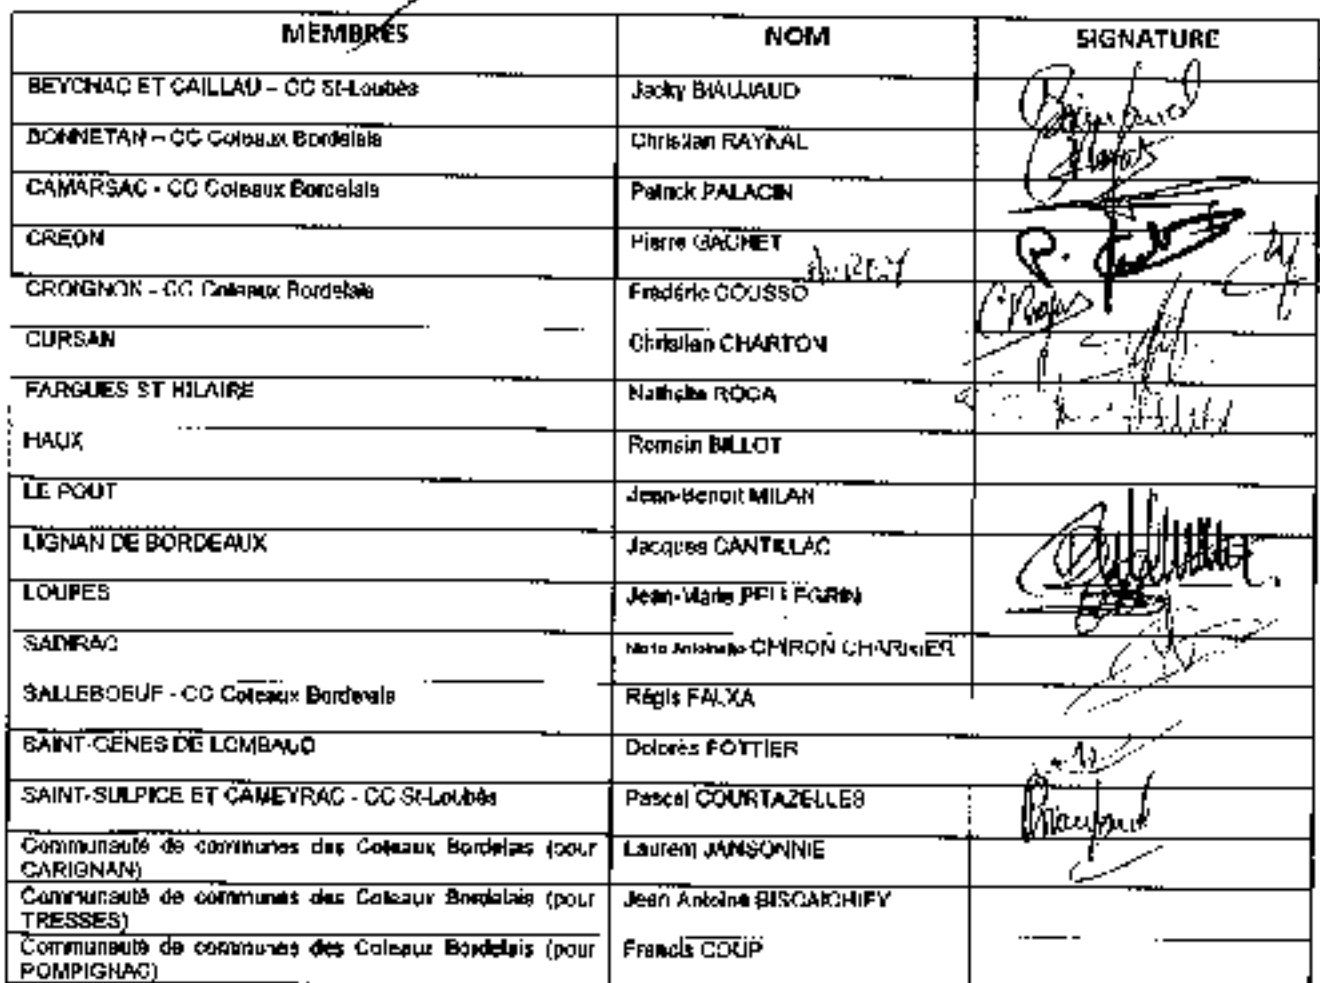 MEMBRES NOM SIGNATURE
BEYCHAC ET CAILLAU – CC St-Loubès Jacky BIAUJAUD
BONNETAN – CC Coteaux Bordelais Christian RAYNAL
CAMARSAC - CC Coteaux Bordelais Patrick PALACIN
CREON Pierre GACHET
CROIGNON - CC Coteaux Bordelais Frédéric COUSSO
CURSAN Christian CHARTON
FARGUES ST HILAIRE Nathalie ROCA
HAUX Romain BILLOT
LE POUT Jean-Benoit MILAN
LIGNAN DE BORDEAUX Jacques CANTILLAC
LOUPES Jean-Marie PELLEGRIN
SADIRAC Marie Antoinette CHIRON CHARRIER
SALLEBOEUF - CC Coteaux Bordelais Régis FALXA
SAINT-GENES DE LOMBAUD Dolorès POTTIER
SAINT-SULPICE ET CAMEYRAC - CC St-Loubès Pascal COURTAZELLES
Communauté de communes des Coteaux Bordelais (pour Laurent JANSONNIE
CARIGNAN)
Communauté de communes des Coteaux Bordelais (pour Jean Antoine BISCAICHIPY
TRESSES)
Communauté de communes des Coteaux Bordelais (pour Francis COUP
POMPIGNAC)